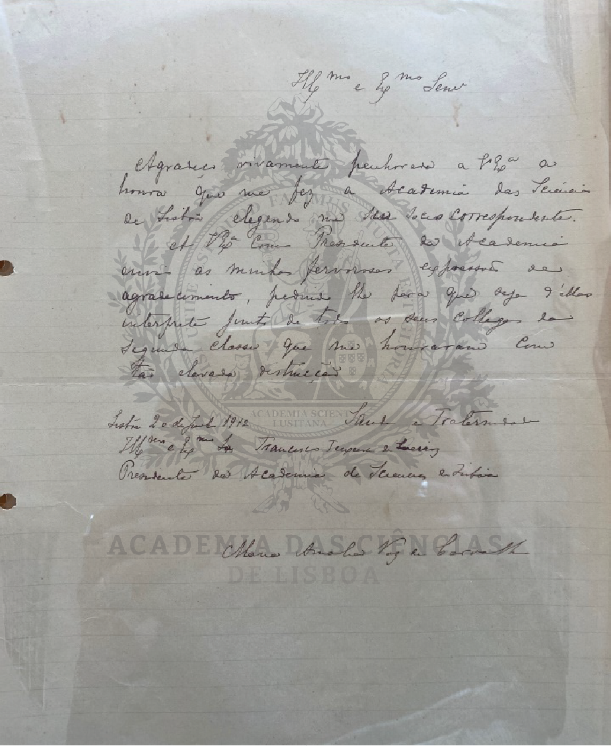 Illmo e Exmo Senr
Agradeço vivamente penhorada a V. Exa a
honra que me fez a Academia das Sciencias
de Lisboa elegendo me sua correspondente.
A V. Exa como Presidente da Academia
envio as minhas fervorosas expressões de
agradecimento, pedindo lhe para que seja d'ellas
interprete junto de todos os seus collegas da
segunda classe que me honraram com
tão elevada distincção
Lisboa 20 de 1912 Saude e Fraternidade
Illmo e Exmo Sr Francisco Teixeira de Queiroz
Presidente da Academia de Sciencias de Lisboa
Maria Amalia Vaz de Carvalho
ACADEMIA SCIENT
LUSITANA
ACADEMIA DAS CIÊNCIAS
DE LISBOA